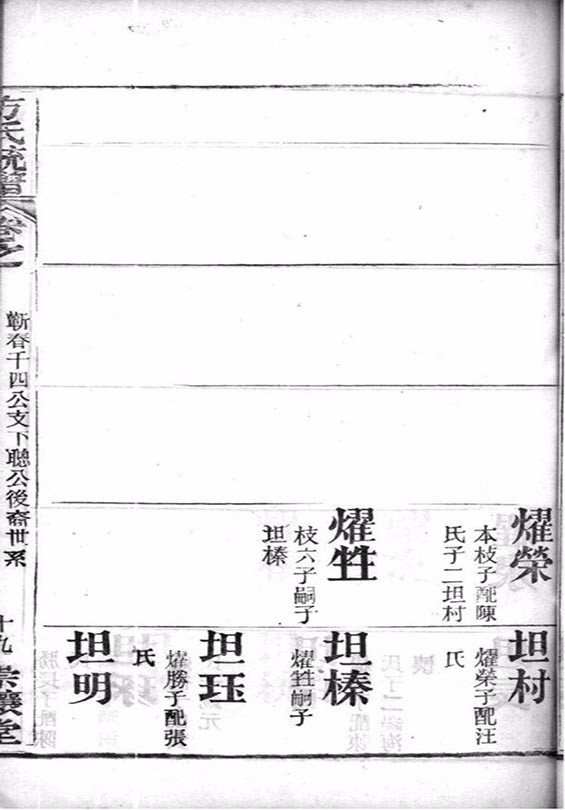 耀榮
本枝子配陳
氏子二坦村
耀甡
枝六子嗣子
坦榛
坦村
耀榮子配汪
氏
坦榛
耀甡嗣子
坦珏
耀勝子配張
氏
坦明
方氏統譜
卷之
蘄春千四公支下聰公後裔世系
十九
崇讓堂